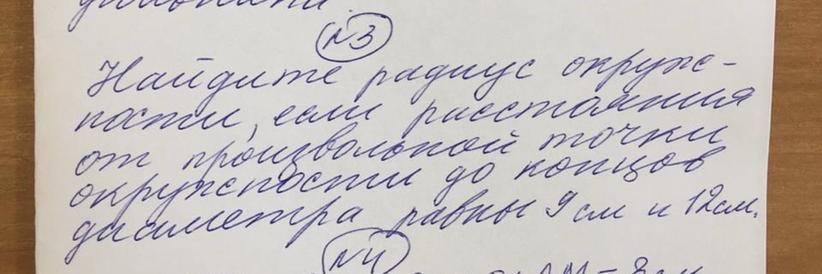 №3
Найдите радиус окруж-
ности, если расстояния
от произвольной точки
окружности до концов
диаметра равны 9 см и 12 см.
№4